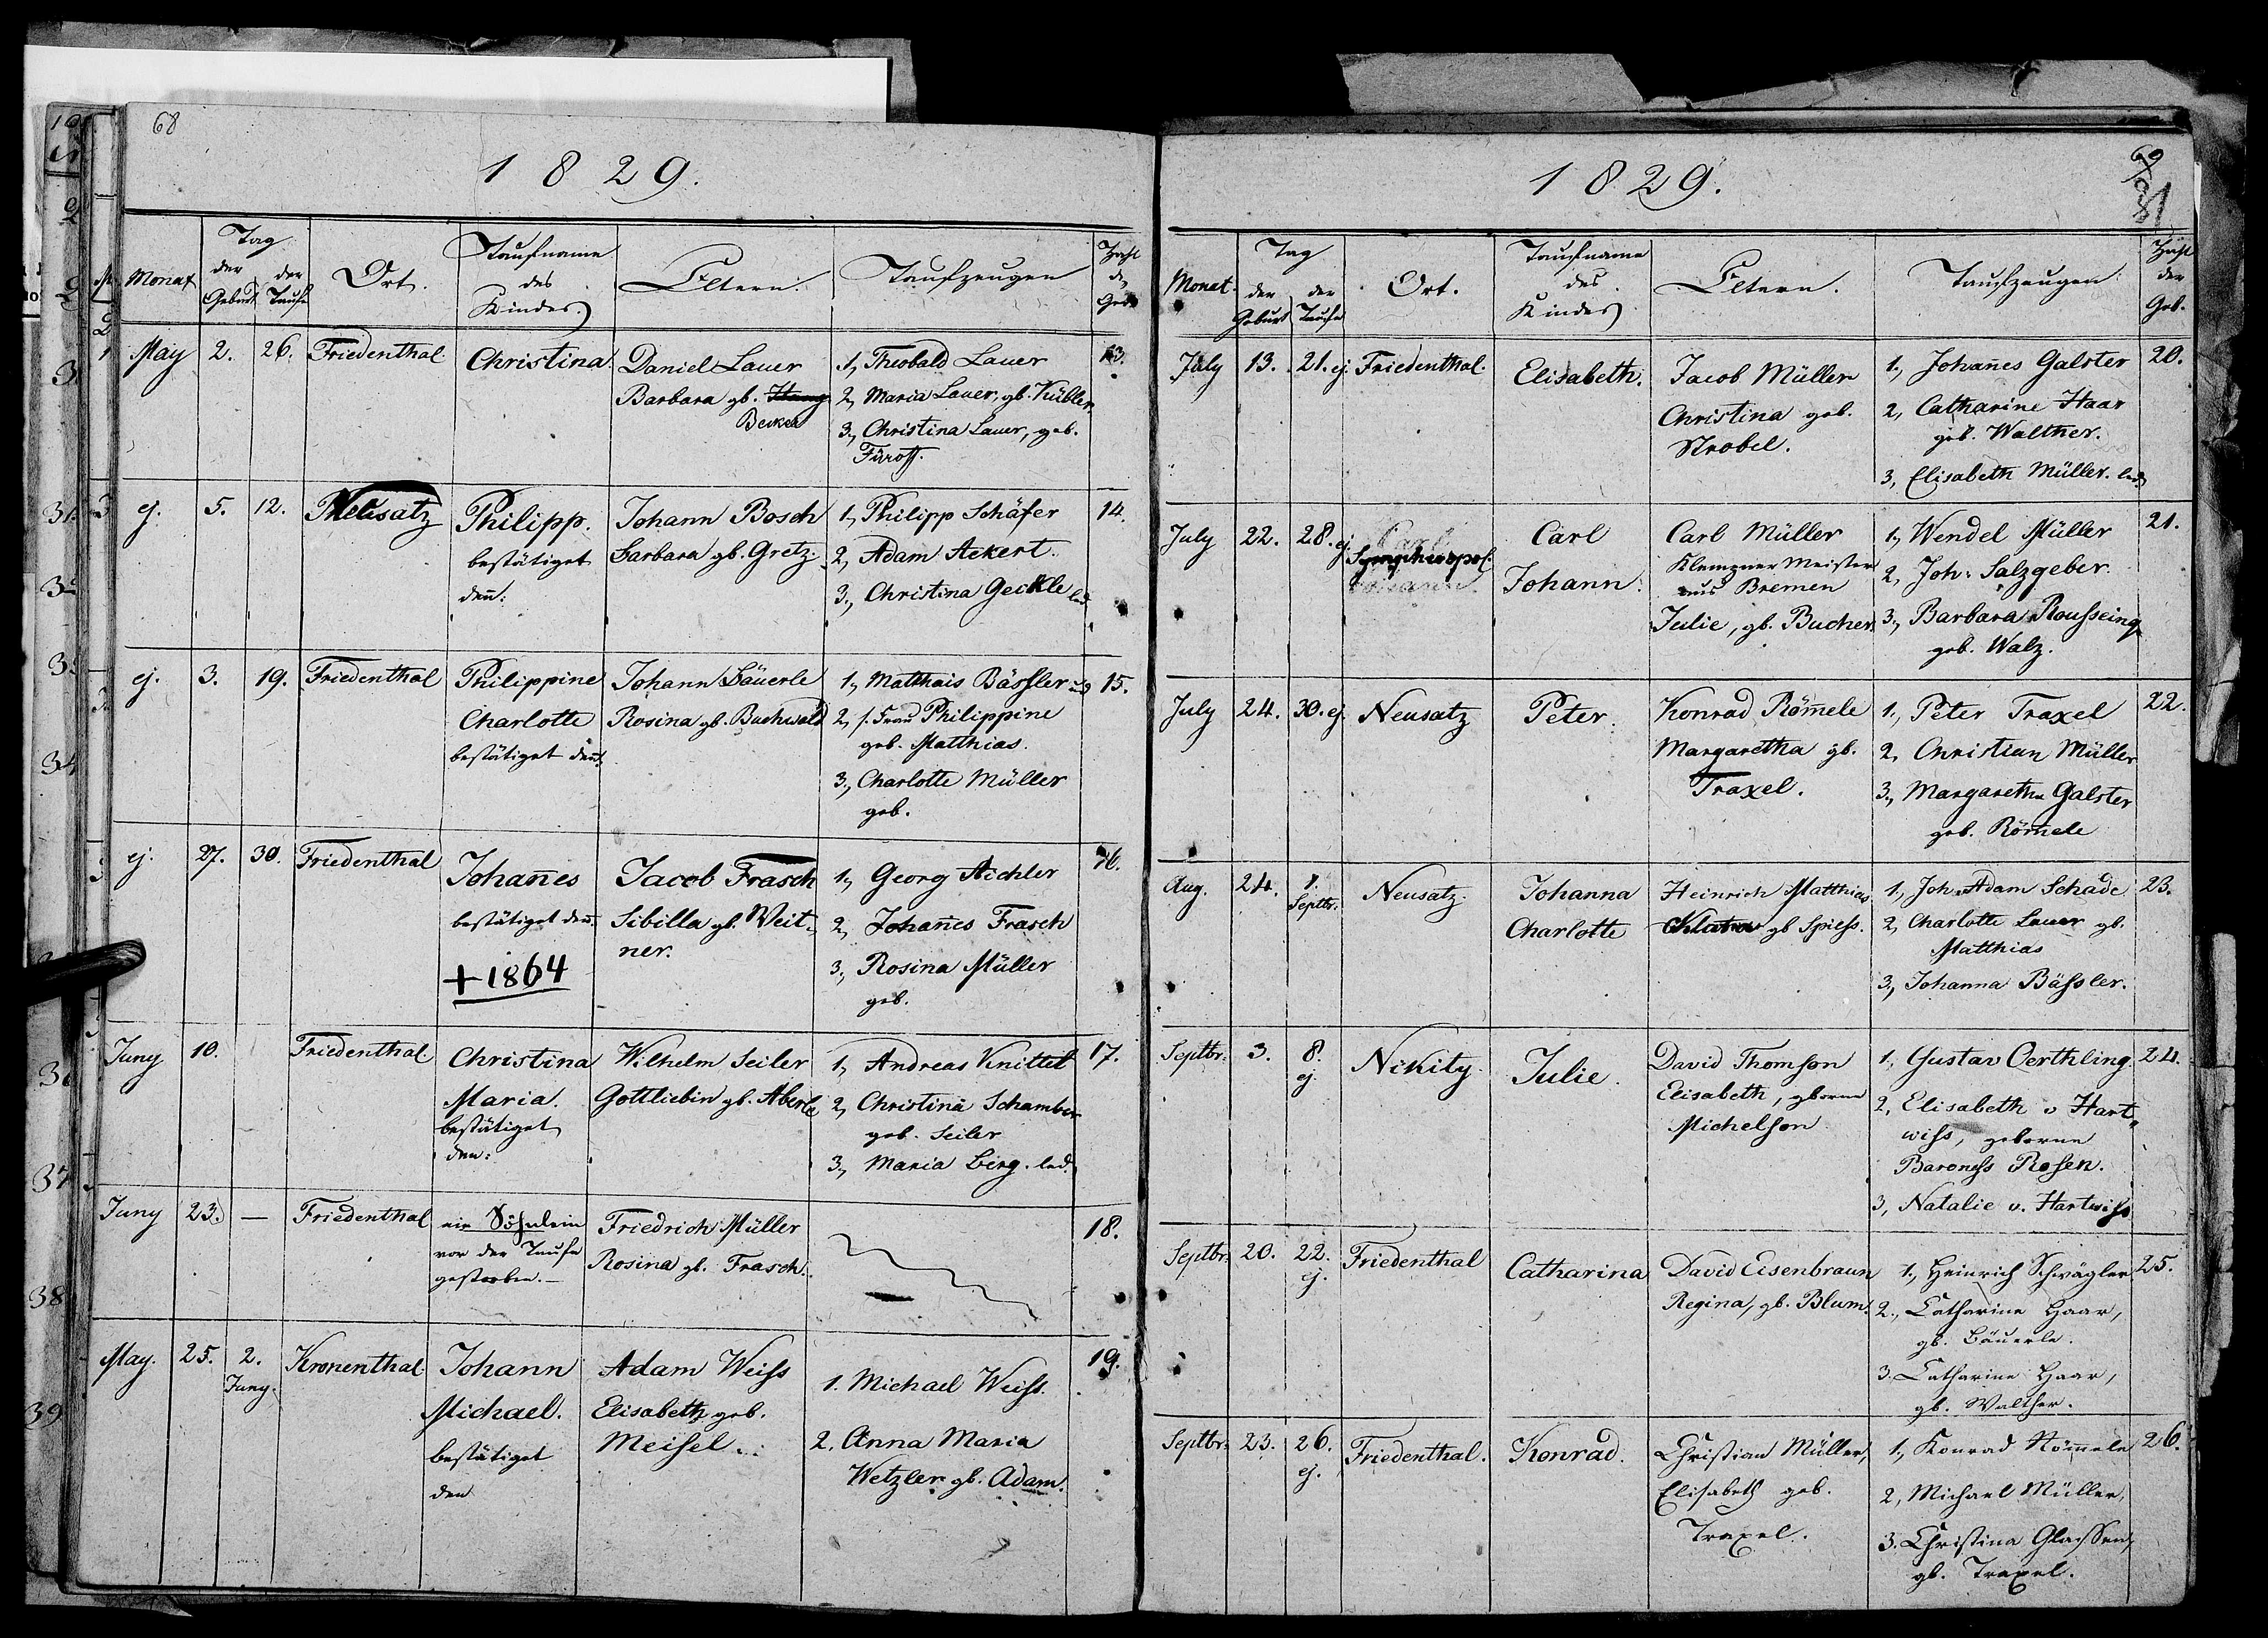 68
1829.
Tag
Taufname
Zahl
Monat
der
der
Ort.
des
Eltern.
Taufzeugen
d.
Geburt
Taufe
Kindes.
Geb.
May 2. 26. Friedenthal. Christina. Daniel Lauer 1, Theobald Lauer 13.
Barbara gb. 2, Maria Lauer, gb. Kübler
Becker 3, Christina Lauer, geb.
ej. 5. 12. Neusatz Philipp. Johann Bosch 1, Philipp Schäfer 14.
bestätiget Barbara gb. Gretz. 2, Adam Ackert.
den: 3, Christina Geckle led.
ej. 3. 19. Friedenthal Philippine Johann Bäuerle 1, Matthais Bässler und 15.
Charlotte Rosina gb. Buchwald 2, s. Frau Philippine
bestätiget den: geb. Matthias.
3, Charlotte Müller
geb.
ej. 27. 30. Friedenthal Johañes Jacob Frasch 1, Georg Aichler 16.
bestätiget den: Sibilla gb. Weit- 2, Johañes Frasch
ner. 3, Rosina Müller
+1864 geb.
Juny 10. Friedenthal. Christina Wilhelm Seiler 1, Andreas Knittel 17.
Maria. Gottliebin gb. Aberle 2, Christina Schamber
bestätiget geb. Seiler
den: 3, Maria Birg. led.
Juny 23. — Friedenthal ein Söhnlein Friedrich Müller 18.
vor der Taufe Rosina gb. Frasch.
gestorben. —
May. 25. 2. Kronenthal. Johann Adam Weiss 1. Michael Weiss. 19.
Juny. Michael. Elisabeth geb.
bestätiget Meisel. 2. Anna Maria
den Wetzler gb. Adam.
1829.
69
31
Tag
Taufname
Zahl
Monat.
der
der
Ort.
des
Eltern.
Taufzeugen
der
Geburt
Taufe
Kindes
Geb.
July 13. 21. ej. Friedenthal. Elisabeth. Jacob Müller 1, Johañes Galster 20.
Christina geb. 2, Catharine Haar
Strobel. geb. Walther.
3, Elisabeth Müller. led.
July 22. 28. ej. Sympheropol. Carl Carl Müller 1, Wendel Müller 21.
Johann. Klempner Meister 2, Joh: Salzgeber.
aus Bremen
Julie, gb. Bucher. 3, Barbara Rousseing
geb. Walz.
July 24. 30. ej. Neusatz Peter. Konrad Röm̄ele 1, Peter Traxel 22.
Margaretha gb. 2, Christian Müller
Traxel. 3, Margaretha Galster
geb. Röm̄ele
Aug. 24. 1. Septbr. Neusatz. Johanna Heinrich Matthias 1, Joh. Adam Schade 23.
Charlotte gb Spiess. 2, Charlotte Lauer gb.
Matthias
3, Johanna Bässler.
Septbr. 3. 8. ej. Nikity. Julie. David Thomson 1, Gustav Oerthling. 24.
Elisabeth, geborne 2, Elisabeth v Hart-
Michelson wiss, geborne
Baroness Rosen.
3, Natalie v. Hartwiss
Septbr. 20. 22. ej. Friedenthal Catharina David Eisenbraun 1, Heinrich Schwägler 25.
Regina, gb. Blum. 2, Catharine Haar,
gb. Bäuerle.
3. Catharine Haar,
gb. Walther.
Septbr. 23. 26. ej. Friedenthal. Konrad. Christian Müller, 1, Konrad Röm̄ele 26.
Elisabeth geb. 2, Michael Müller,
Traxel. 3. Christina Glassen,
gb. Traxel.